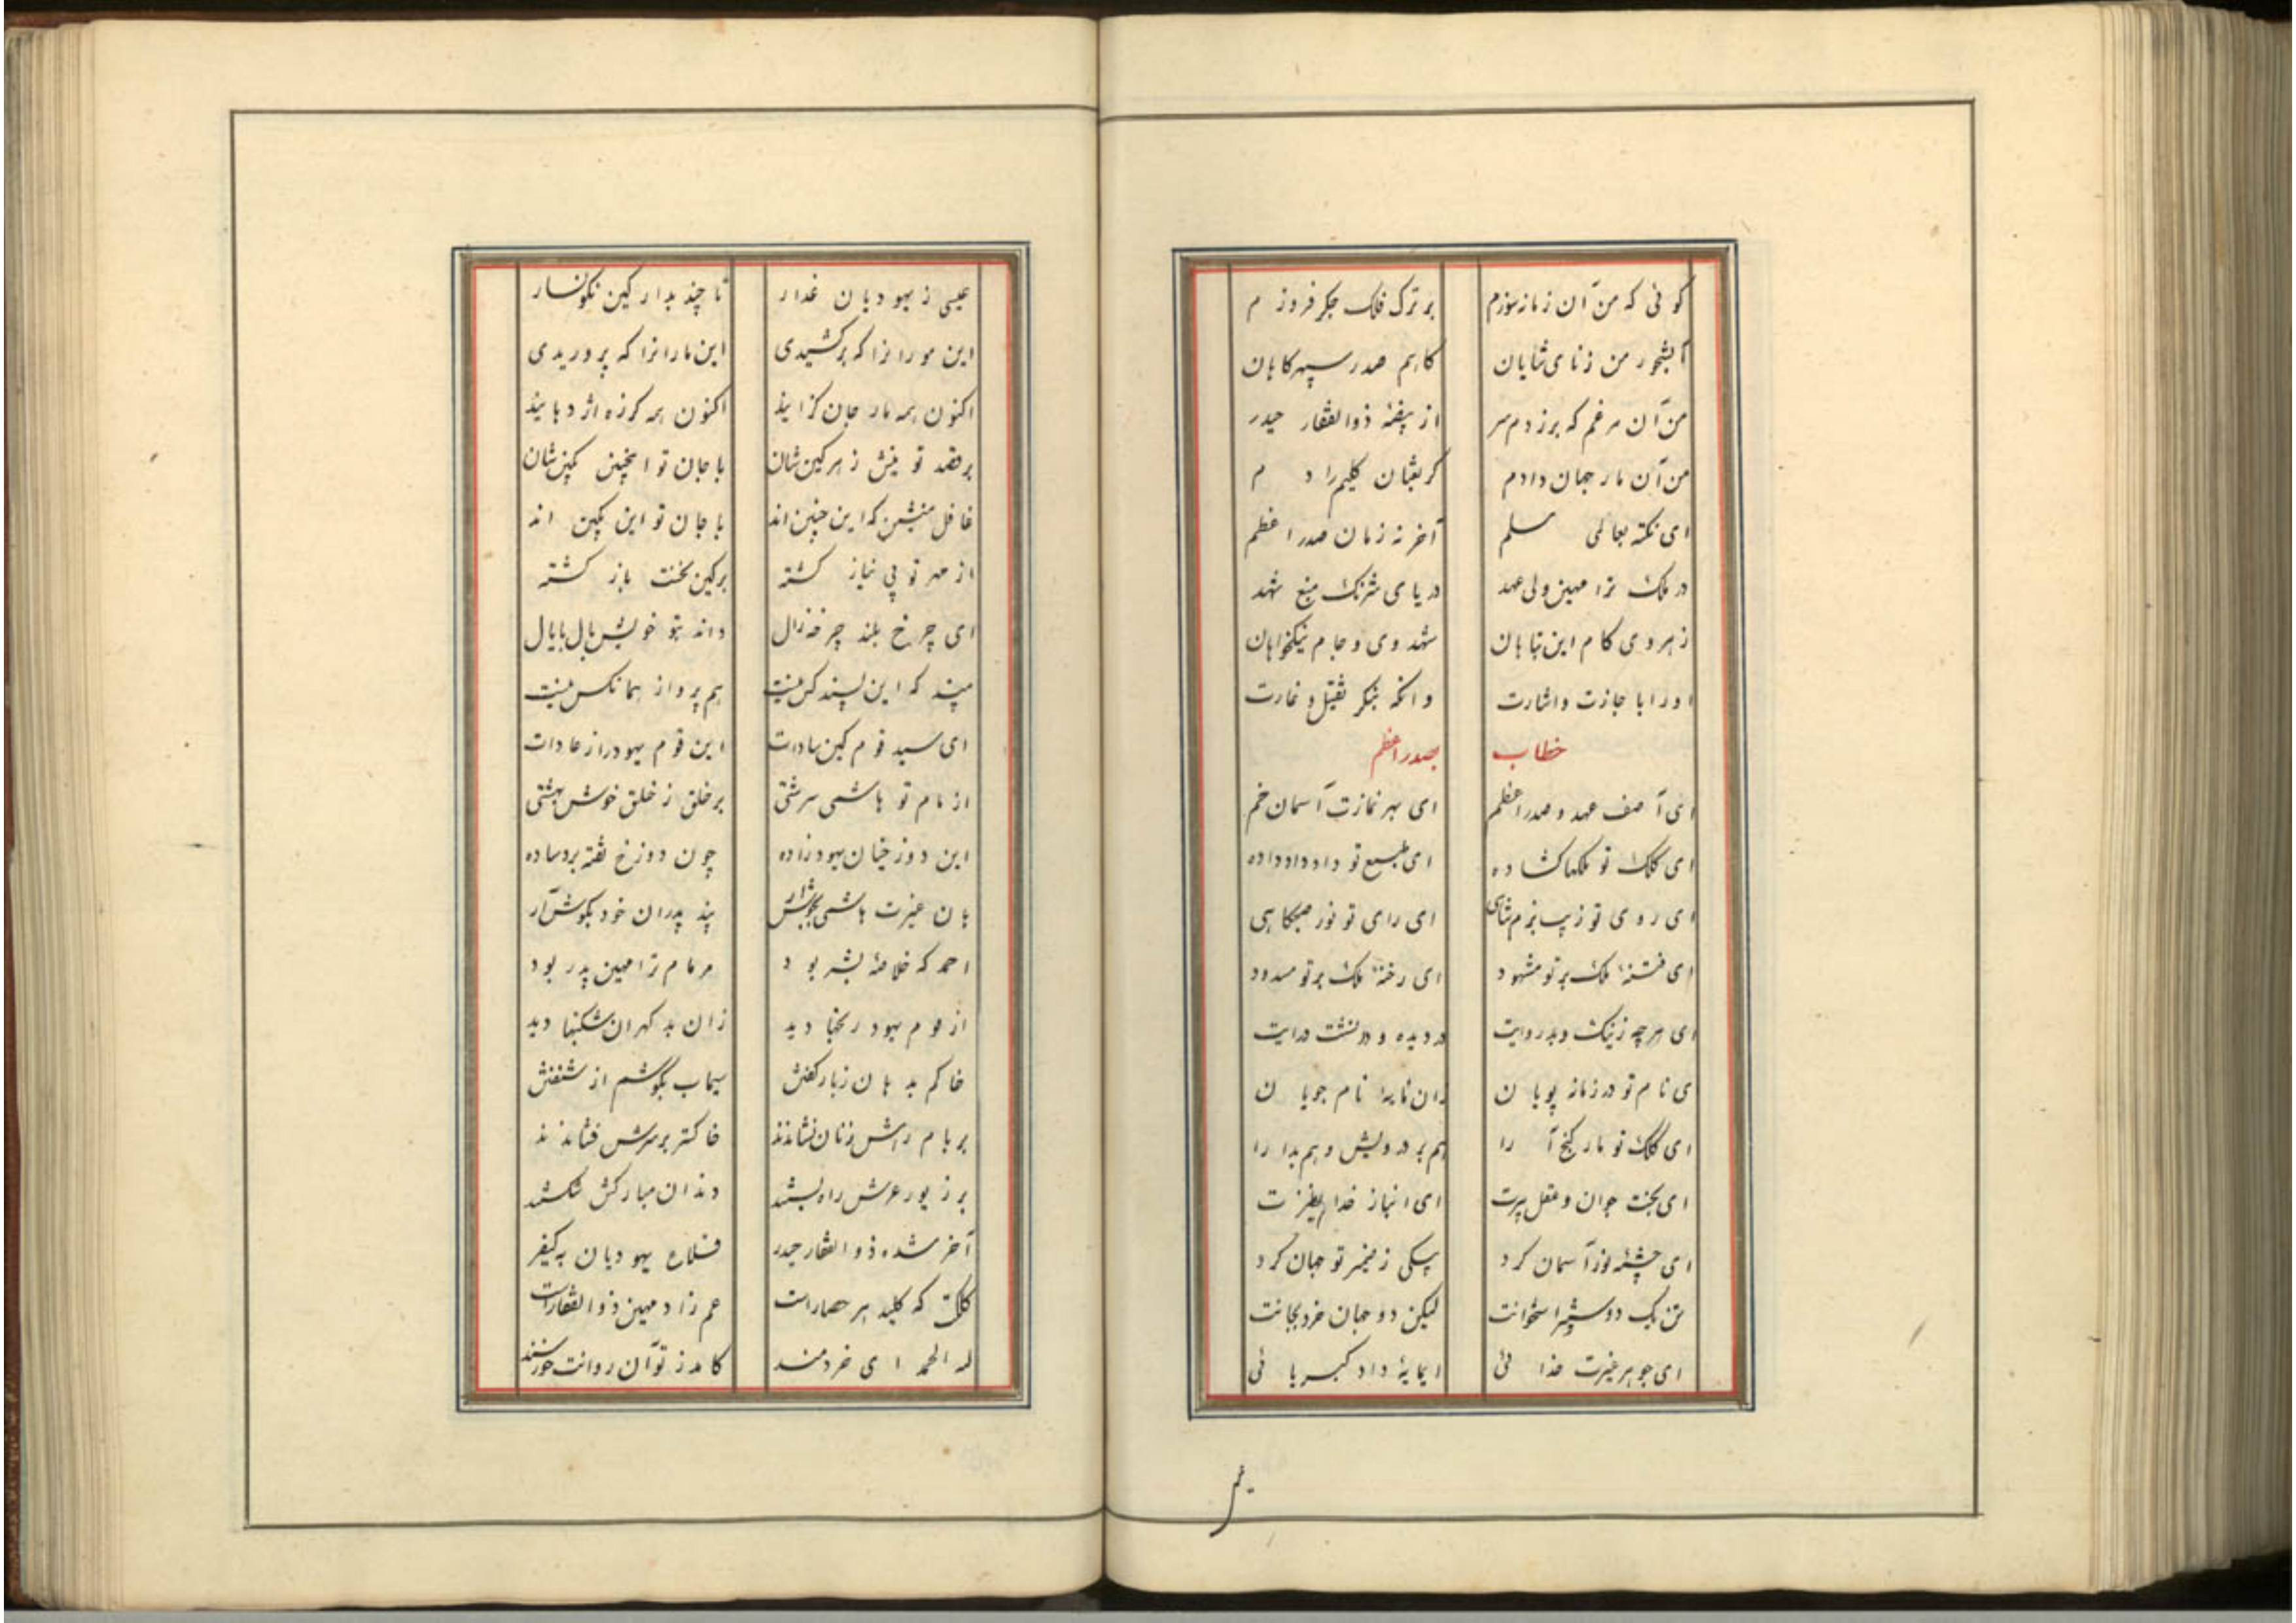 کوئی که من آن زمانه سوزم بر ترک فلک جگر فروزم
آبشخور من ز نای شایان کاهم صدر سپهر کاهان
من آن مرغم که برزدم سر از بیضهٔ ذوالفقار حیدر
من آن مار جهان دادم کز ثعبان کلیم زادم
ای نکته بعالمی مسلم آخر نه زمان صدر اعظم
در ملک ترا مهین ولی عهد دریای شرنگ منبع شهد
زهر وی کام این تباهان شهد وی و جام نیکخواهان
او را باجازت و اشارت وانگه بنگر بقتل و غارت
خطاب بصدر اعظم
ای آصف عهد و صدر اعظم ای بهر نمازت آسمان خم
ای کلک تو ملکها کشاده ای طبع تو داد داد داده
ای روی تو زیب بزم شاهی ای رای تو نور صبحکاهی
ای فتنهٔ ملک بر تو مشهود ای رخنهٔ ملک بر تو مسدود
ای هرچه ز نیک و بد روایت در دیده و دانشت درایت
ای نام تو در زمانه پویان زان مایهٔ نام جویان
ای کلک تو مار گنج آرا هم بر درویش و هم بدارا
ای بخت جوان و عقل پیرت ای انباز خدا
ای چشمهٔ نور آسمان کرد پیکی ز ضمیر تو جهان کرد
تن یک دو سه استخوانت لیکن دو جهان خرد بجانت
ای جوهر غیرت خدائی ای مایهٔ داد کبریائی
عیسی ز یهودیان غدار تا چند بدار کین نگونسار
این مورانرا که برکشیدی این مارانرا که پروریدی
اکنون همه مار جان گزایند اکنون همه گرزه اژدهایند
بر قصد تو نیش زهر کین شان با جان تو اینچنین کمین شان
غافل منشین که این چنین اند با جان تو این کمین اند
از مهر تو بی نیاز گشته بر کین نخست باز گشته
ای چرخ بلند چرخه زال داند بتو خویش بال با بال
مپسند که این پسند کس نیست هم پرواز هما مگس نیست
ای سید قوم کین سادات این قوم یهود راز عادات
از نام تو هاشمی سرشتی بر خلق ز خلق خوش بهشتی
این دوزخیان یهود زاده چون دوزخ تفته بر دساده
هان غیرت هاشمی بجوش آر پند پدران خود بگوش آر
احمد که خلاصهٔ بشر بود مر مام ترا مهین پدر بود
از قوم یهود رنجها دید زان بد گهران شکنجها دید
خاکم بدهان ز بار گفتش سیماب بگوشم از شنفتش
بر بام رهش زنان نشاندند خاکستر بر سرش فشاندند
بر زیور عرش راه بستند دندان مبارکش شکستند
آخر شده ذوالفقار حیدر قلاع یهودیان بکیفر
کلکت که کلید هر حصار است عم زاد مهین ذوالفقار است
لله الحمد ای خردمند کامد ز تو آن روانت خورسند